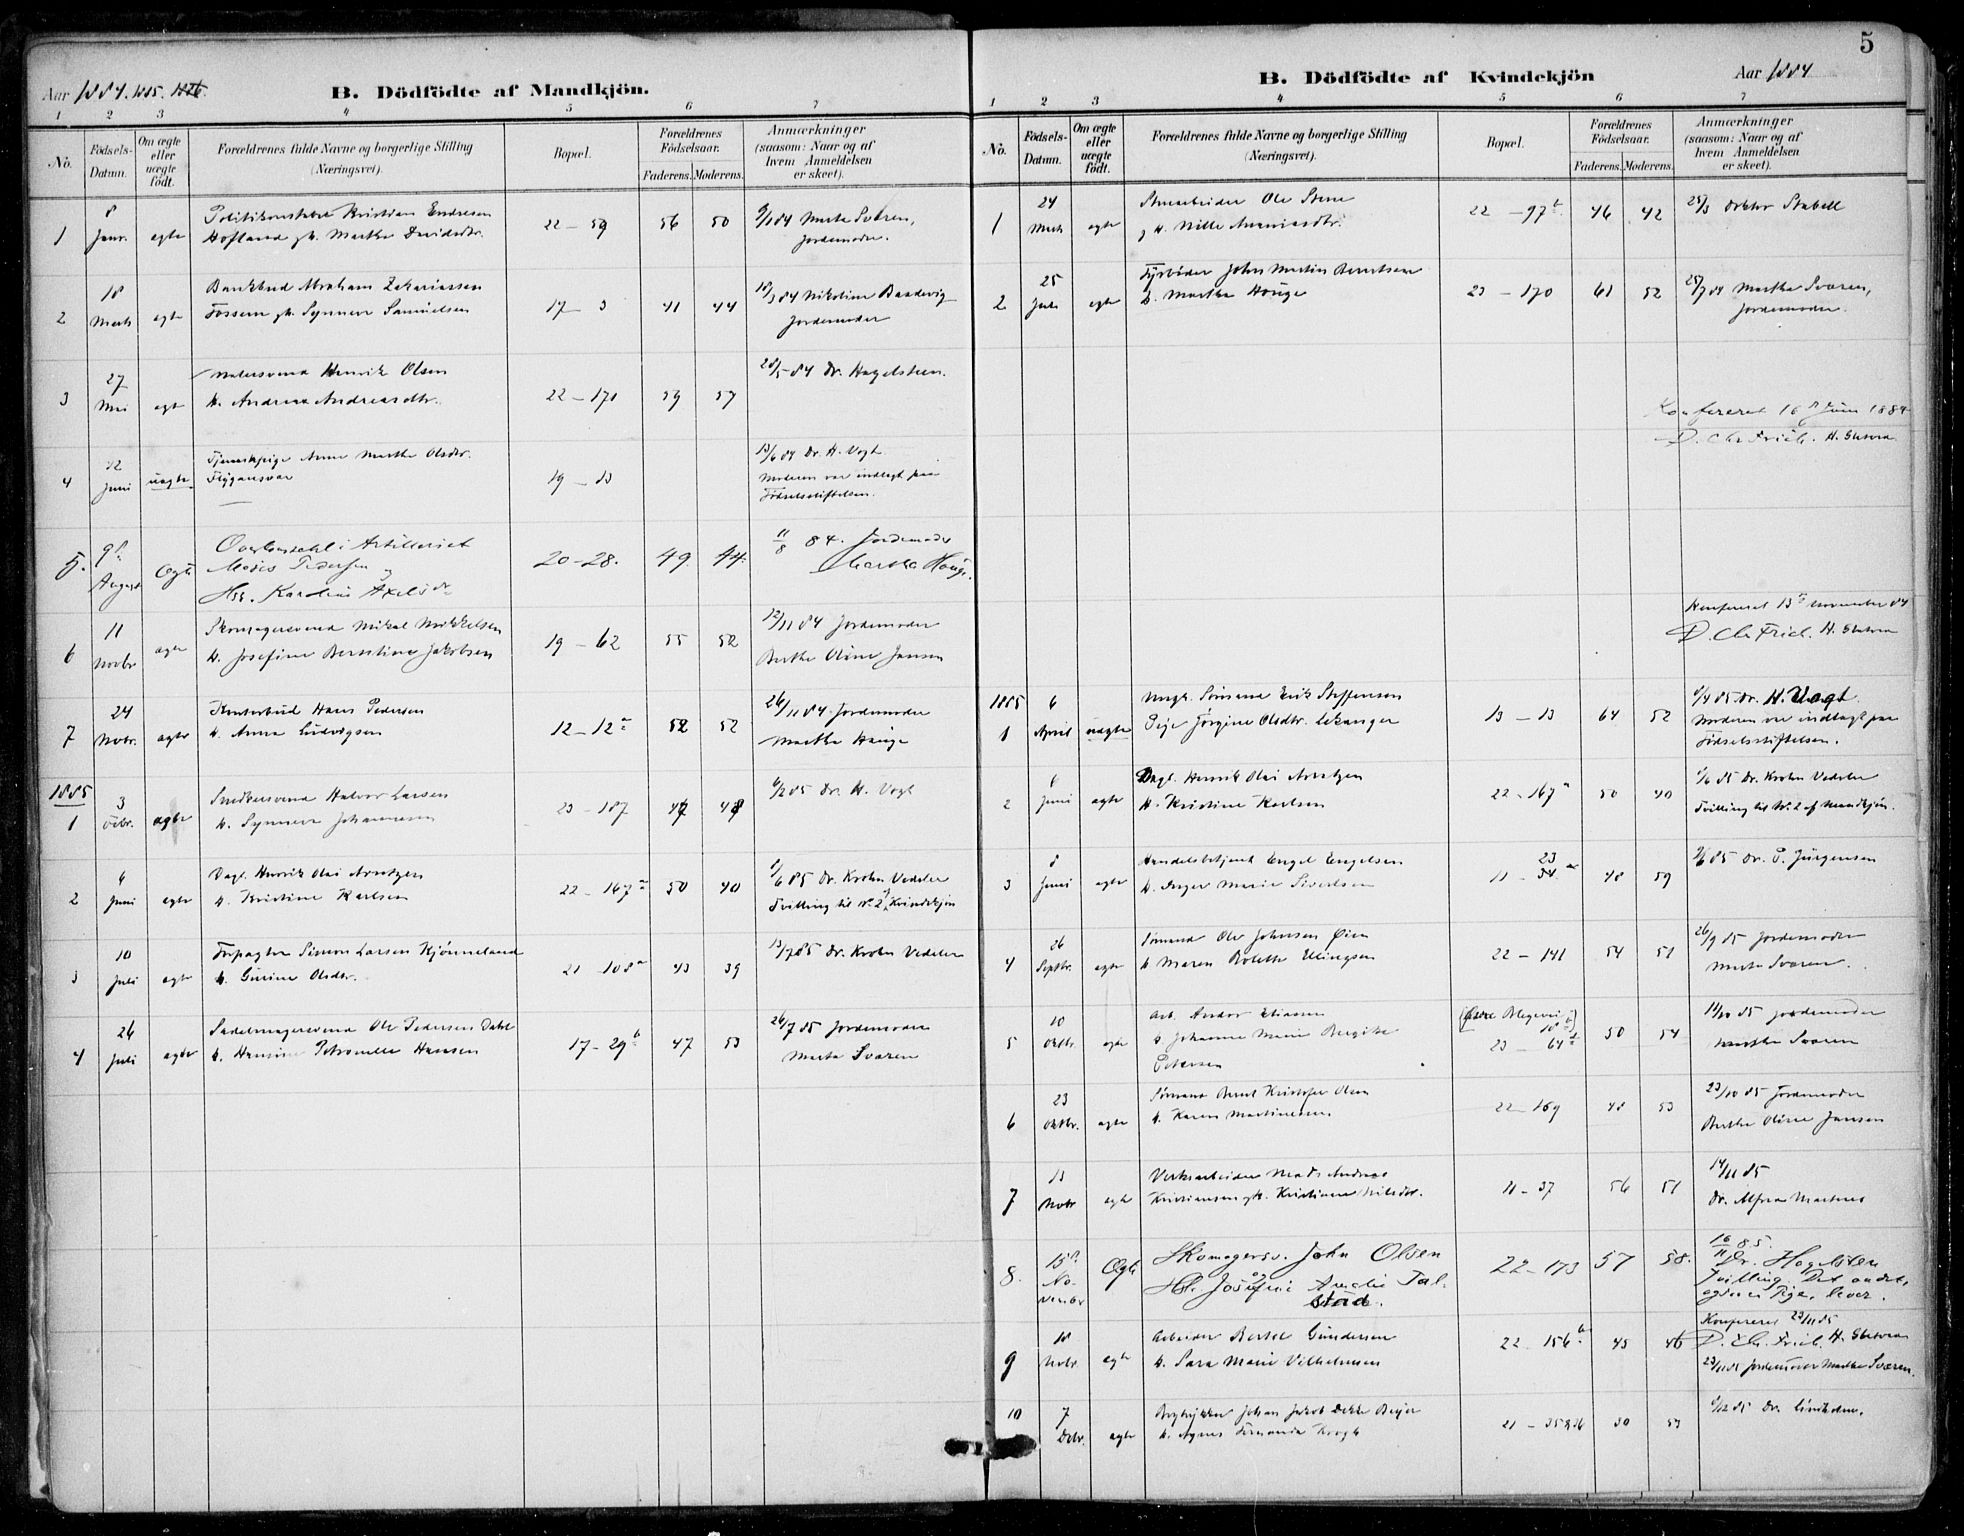 Aar 1884. 1885. 1886.
B. Dödfödte af Mandkjön.
1 2 3 4 5 6 7
No.
Födsels-
Datum.
Om ægte
eller
uægte
födt.
Forældrenes fulde Navne og borgerlige Stilling
(Næringsvei).
Bopæl.
Forældrenes
Födselsaar.
Faderens. Moderens.
Anmærkninger
(saasom: Naar og af
hvem Anmeldelsen
er skeet).
1
8
Janr.
ægte
Politikonstabel Kristian Endresen
Hofland gh. Marthe Davidsdtr.
22 - 59
56 50
9/1 84 Marta Sværen,
Jordemoder.
2
18
Marts
ægte
Bankbud Abraham Zakariassen
Fossum gh. Synneve Samuelsen
17 - 3
41 44
18/3 84 Nikoline Baadevig
Jordemoder
3
27
Mai
ægte
Malersvend Henrik Olsen
H. Andrea Andreasdtr.
22 - 171
59 57
28/5 84 Dr. Hagelsteen.
4
12
Juni
uægte
Tjenestepige Anna Marthe Olsdtr.
Flygansvær
19 - 13
13/6 84 Dr. H. Vogt
Moderen var indlagt paa
Födselsstiftelsen.
5.
9de
August
Ægte
i Artilleriet
Moses Pedersen og
Hst. Karoline Axelsdr
20 - 28.
49. 44.
11/8 84. Jordemoder
Martha Hauge.
6
11
Novbr.
ægte
Skomagersvend Mikal Mikkelsen
H. Josefine Berntine Jakobsen
19 - 62
55 52
12/11 84 Jordemoder
Berthe Oline Jansen
7
24
Novbr.
ægte
Kontorbud Hans Pedersen
H. Anna Ludvigsen
12 - 12a
52 52
26/11 84 Jordemoder
Marthe Hauge
1885
1
3
Febr.
ægte
Snedkersvend Halvor Larsen
H. Synneve Johannesen
23 - 187
47 48
6/2 85 Dr. H. Vogt
2
6
Juni
ægte
Dagl. Henrik Olai Arntzen
H. Kristine Karlsen
22 - 167a
50 40
6/6 85 Dr. Krohn Vedeler
Tvilling til No. 2 af Kvindekjön
3
10
Juli
ægte
Forpagter Simon Larsen Kjönneland
H. Gurine Olsdtr.
21 - 108a
43 39
13/7 85 Dr. Krohn Vedeler
4
26
Juli
ægte
Sadelmagersvend Ole Pedersen Dahl
H. Hansine Petronelle Hansen
17 - 29b
47 53
26/7 85 Jordemoder
Marta Sværen
5
B. Dödfödte af Kvindekjön
Aar 1884
1 2 3 4 5 6 7
No.
Födsels-
Datum.
Om ægte
eller
uægte
födt.
Forældrenes fulde Navne og borgerlige Stilling
(Næringsvei).
Bopæl.
Forældrenes
Födselsaar.
Faderens. Moderens.
Anmærkninger
(saasom: Naar og af
hvem Anmeldelsen
er skeet).
1
24
Marts
ægte
Stuearbeider Ole Stene
g H. Nille Ananiasdtr.
22 - 97b
46 42
25/3 Doktor Stabell
2
25
Juli
ægte
Fyrböder Johan Martin Berntsen
H. Marthe Hauge
23 - 170
61 52
25/7 84 Marthe Sværen,
Jordemoder.
Konfereret 16de Juni 1884
D. Chr Friel. H. Gletvra
Konfereret 13de November 84
D. Chr Friel. H. Gletvra
1885
1
6
April
uægte
Ungk. Sömand Erik Steffensen
Pige Jörgine Olsdtr. Lekanger
13 - 13
64 52
8/4 85 Dr. H. Vogt
Moderen var indlagt paa
Födselsstiftelsen.
2
6
Juni
ægte
Dagl. Henrik Olai Arntzen
H. Kristine Karlsen
22 - 167a
50 40
6/6 85 Dr. Krohn Vedeler
Tvilling til No. 2 af Mandkjön.
3
8
Juni
ægte
Handelsbetjent Engel Engelsen
H. Inger Marie Sivertsen
23
11 - 34
48 59
9/6 85 Dr. P. Jürgensen
4
26
Septbr.
ægte
Sömand Ole Johnsen Öien
H. Maren Bolette Ellingsen
22 - 141
54 51
26/9 85 Jordemoder
Marta Sværen.
5
10
Oktbr.
ægte
Arb. Andor Eliassen
H. Johanne Marie Bergitte
Petersen
(Övre Blegevei 18b)
23 - 64
50 54
11/10 85 Jordemoder
Marthe Sværen
6
23
Oktbr.
ægte
Sömand Bernt Kristofer Olsen
H. Karen Martinesen
22 - 169
48 53
23/10 85 Jordemoder
Berthe Oline Jansen
7
13
Novbr
ægte
Verksarbeider Mads Andreas
Kristiansen gh. Kristiane Nilsdtr.
11 - 37
56 51
14/11 85
Dr. Alfred Martens
8.
15de
No-
vember
Ægte
Skomagersv. John Olsen
og
Hst. Josefine Amalie Tal-
stad.
22 - 173
57 58.
16/11 85.
Dr. Hagelsten
Tvilling. Det andet,
ogsaa en Pige, lever.
9
18
Novbr.
ægte
Arbeider Bertel Gundersen
H. Sara Marie Vilhelmsen
22 - 156b
45 46
Konfereret 23/11 85
D. Chr. Friel. H. Gletvra
23/11 85 Jordemoder Marthe Sværen.
10
7
Debr.
ægte
Bogtrykker Johan Jakob Dekke Beijer
H. Agnes Fernanda Krogh
21 - 35 &36
30 57
8/12 85 Dr. Lindholm.